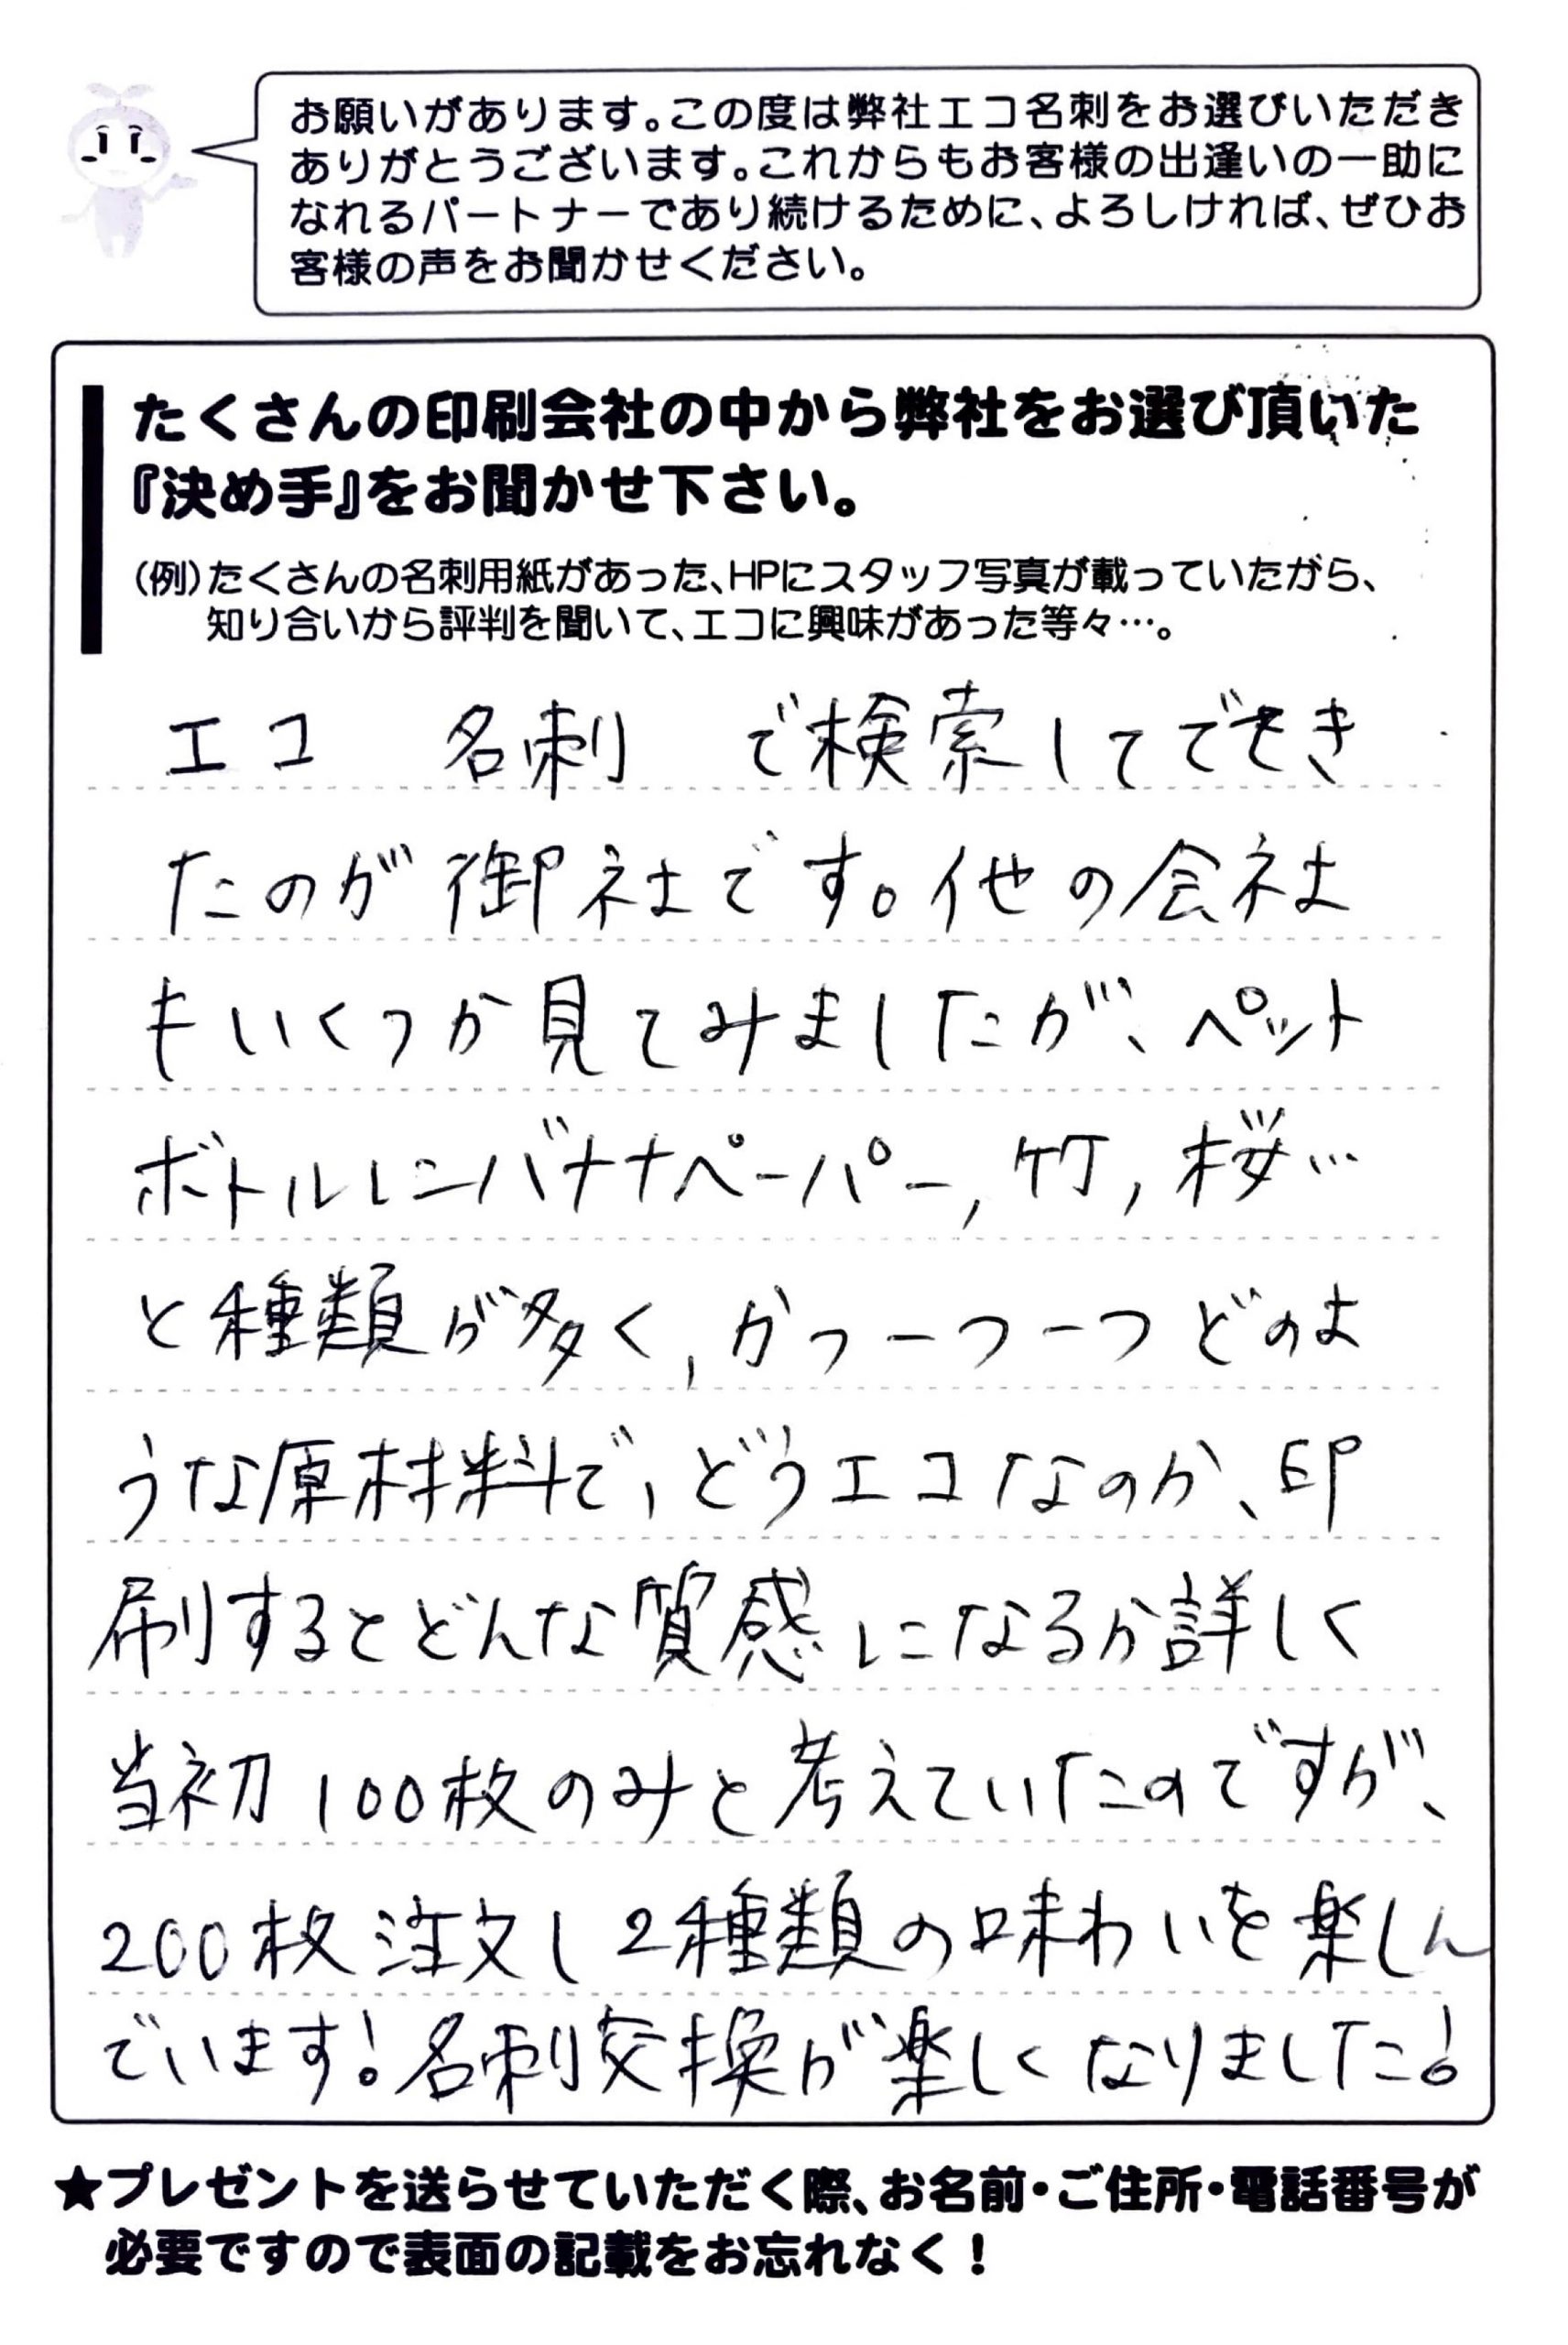 お願いがあります。この度は弊社エコ名刺をお選びいただき
ありがとうございます。これからもお客様の出逢いの一助に
なれるパートナーであり続けるために、よろしければ、ぜひお
客様の声をお聞かせください。
たくさんの印刷会社の中から弊社をお選び頂いた
『決め手』をお聞かせ下さい。
(例)たくさんの名刺用紙があった、HPにスタッフ写真が載っていたがら、
知り合いから評判を聞いて、エコに興味があった等々…。
エコ 名刺 で検索してでてき
たのが御社です。他の会社
もいくつか見てみましたが、ペット
ボトルレンバナナペーパー,竹,桜…
と種類が多く,かつ一つ一つどのよ
うな原材料で,どうエコなのか、印
刷するとどんな質感になるか詳しく
当初100枚のみと考えていたのですが、
200枚注文し2種類の味わいを楽しん
でいます!名刺交換が楽しくなりました!
★プレゼントを送らせていただく際、お名前・ご住所・電話番号が
必要ですので表面の記載をお忘れなく!